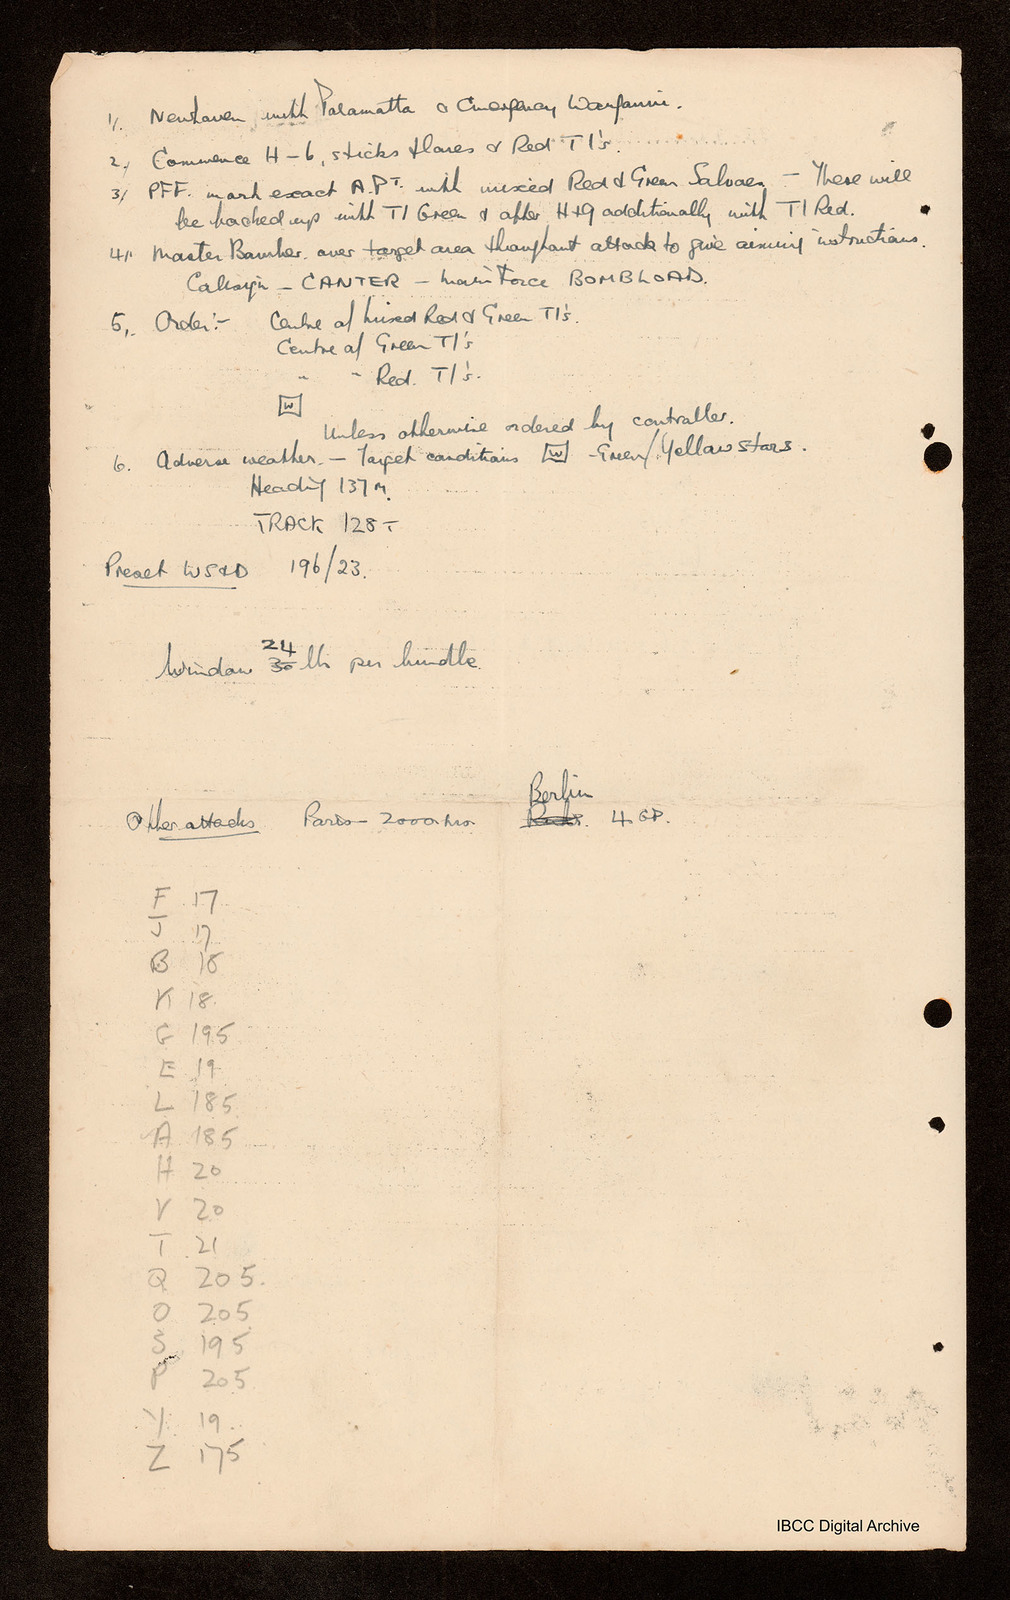 1/. Newhaven with Paramatta & Emergency Wanganui.
2/ Commence H-6, sticks flares & Red TI's.
3/ PFF. mark exact A.PT. with mixed Red & Green Salvoes - These will
be backed up with TI Green & after H+9 additionally with TI Red.
4/. Master Bomber over target area throughout attack to give aiming instructions.
Callsign - CANTER - Main Force BOMBLOAD.
5,. Order:- Centre of mixed Red & Green TI's.
Centre of Green TI's
" " Red. TI's.
W
Unless otherwise ordered by controller.
6. Adverse weather. - Target conditions W - Green/Yellow stars.
Heading 137M.
TRACK 128T
Preset WS&D 196/23.
Window 24 30 lb per bundle.
Other attacks Paris - 2000 hrs Berlin 4 GP.
F 17
J 17
B 18
K 18
G 195
E 19
L 185
A 185
H 20
V 20
T 21
Q 205.
O 205
S 195
P 205
Y 19.
Z 175
IBCC Digital Archive